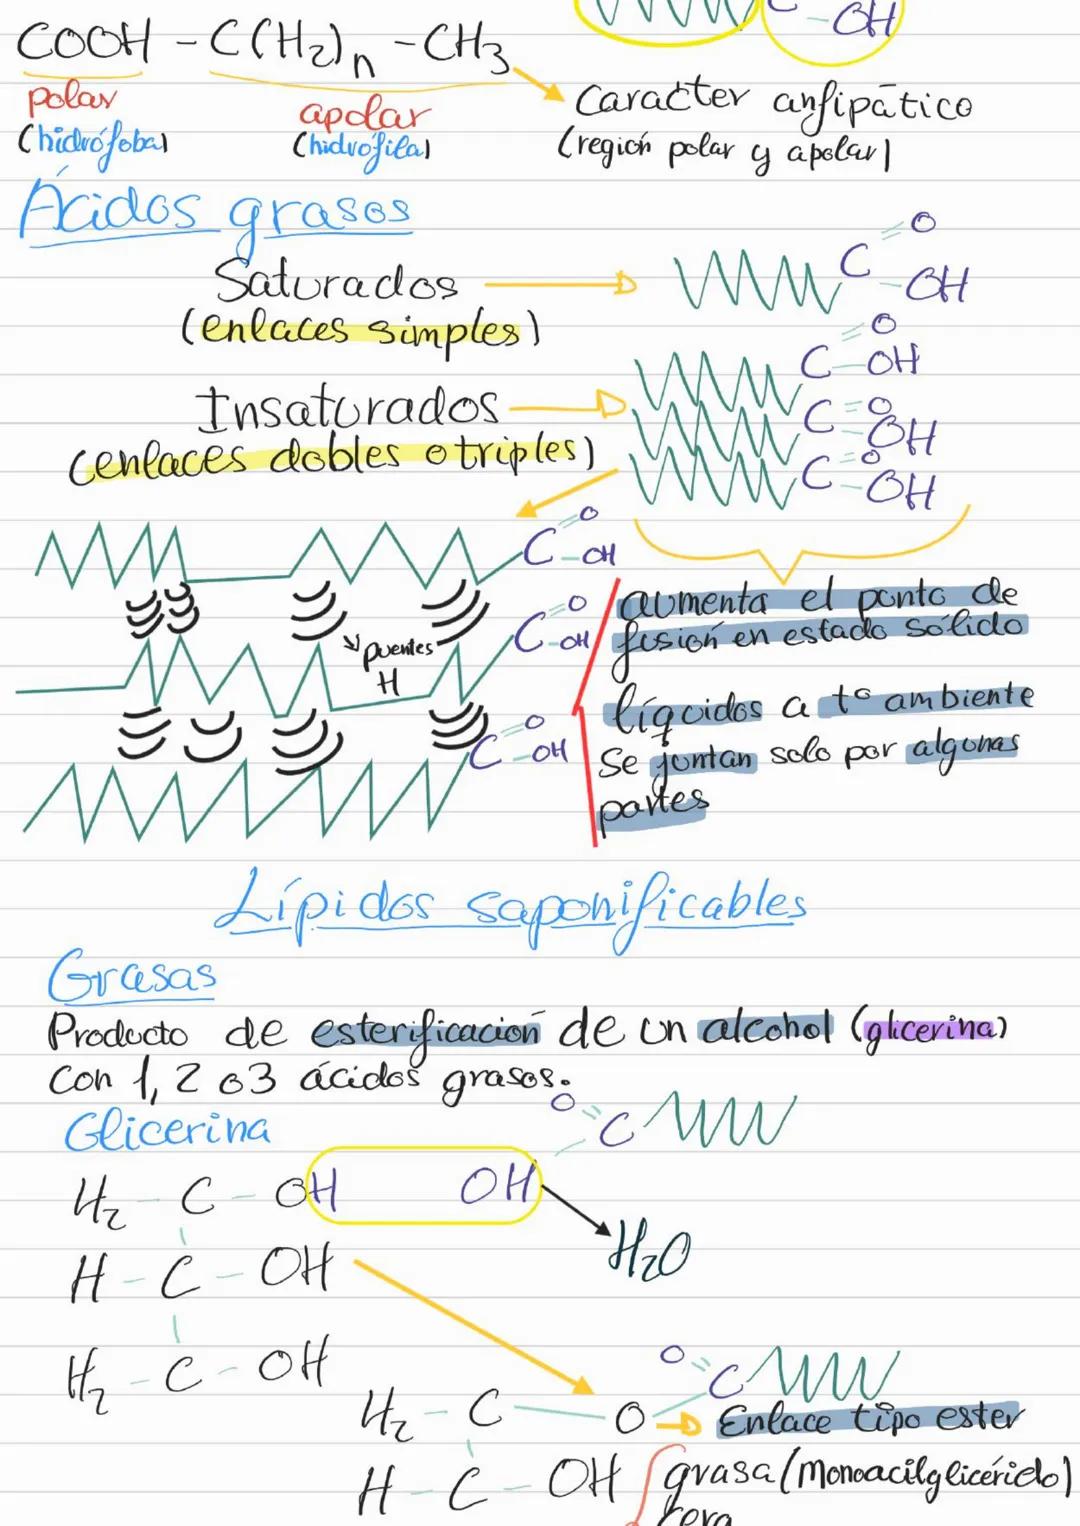 C -OH
COOH - C(H2)n - CH3
polar
(hidrófoba)
apolar
(hidrófila)
Carácter anfipático
(región polar y apolar)
Ácidos grasos
Saturados
(enlaces simples)
C =O -OH
Insaturados
(enlaces dobles o triples)
C =O -OH
C =O -OH
C =O -OH
C =O -OH
C =O -OH
C =O -OH
puentes
H
aumenta el punto de
fusión en estado sólido
líquidos a tº ambiente
Se juntan solo por algunas
partes
Lípidos saponificables
Grasas
Producto de esterificación de un alcohol (glicerina)
con 1, 2 o 3 ácidos grasos.
Glicerina
O=C
H2 - C - OH OH
H2O
H - C - OH
H2 - C - OH
O=C
H2 - C - O
Enlace tipo ester
H - C - OH
grasa (Monoacilglicérido)